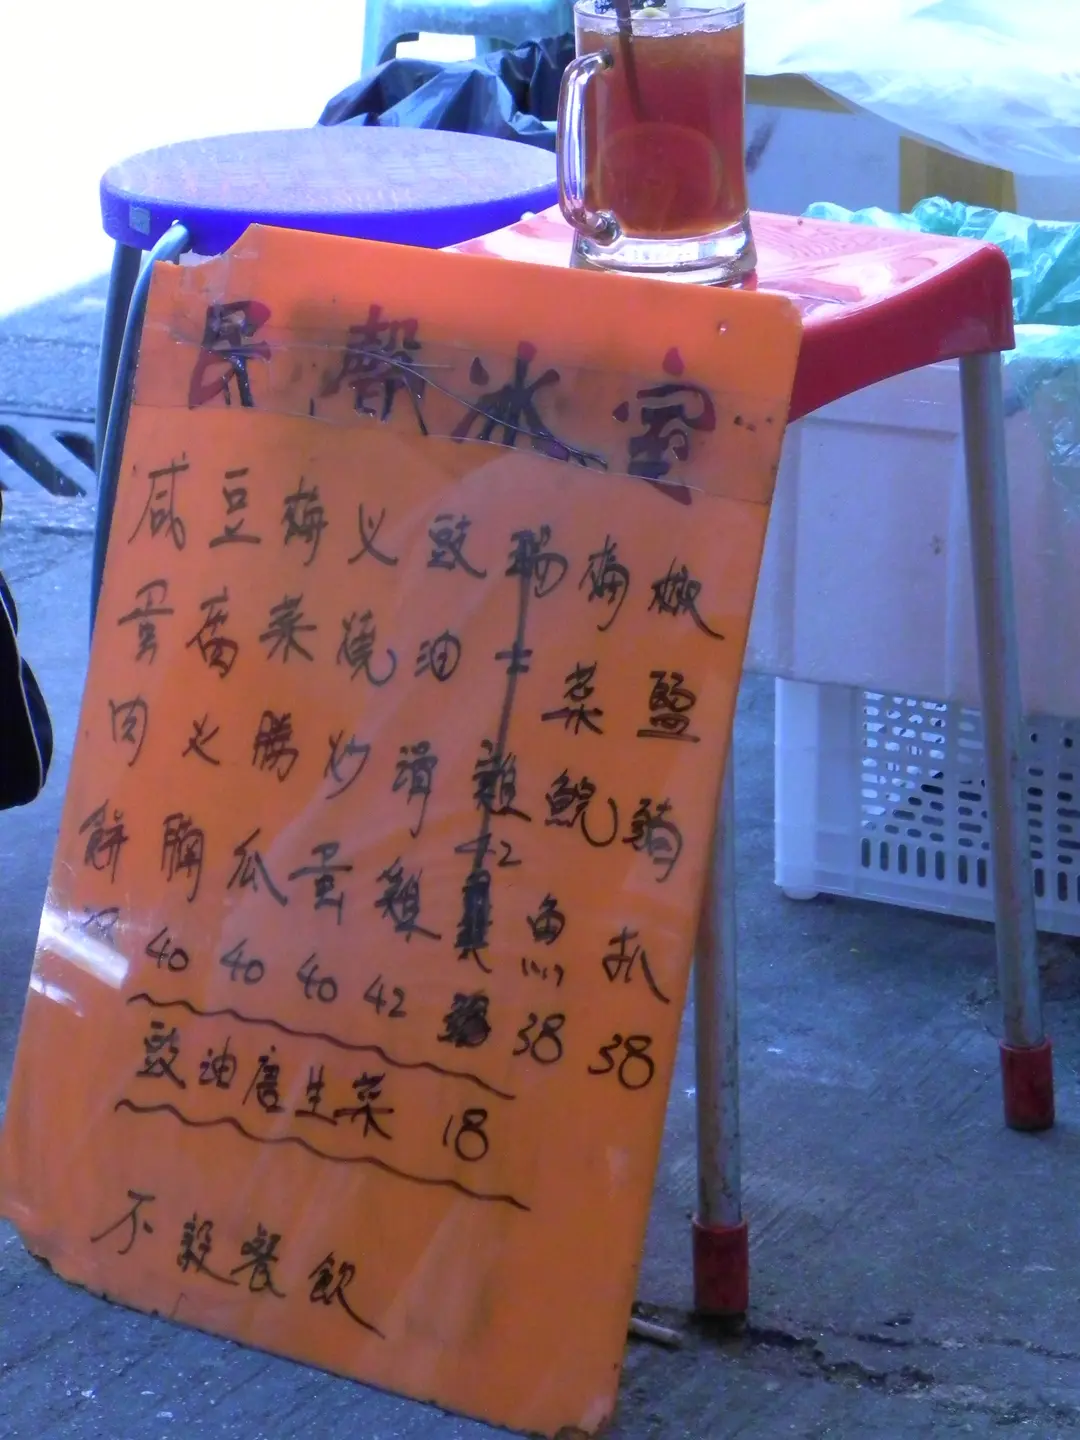 民聲冰室
椒鹽猪扒 38
梅菜鯇魚 38
瑞士雞 42
豉油滑雞 42
叉燒炒蛋 40
梅菜勝瓜 40
豆腐火腩 40
咸蛋肉餅
豉油唐生菜 18
不設餐飲